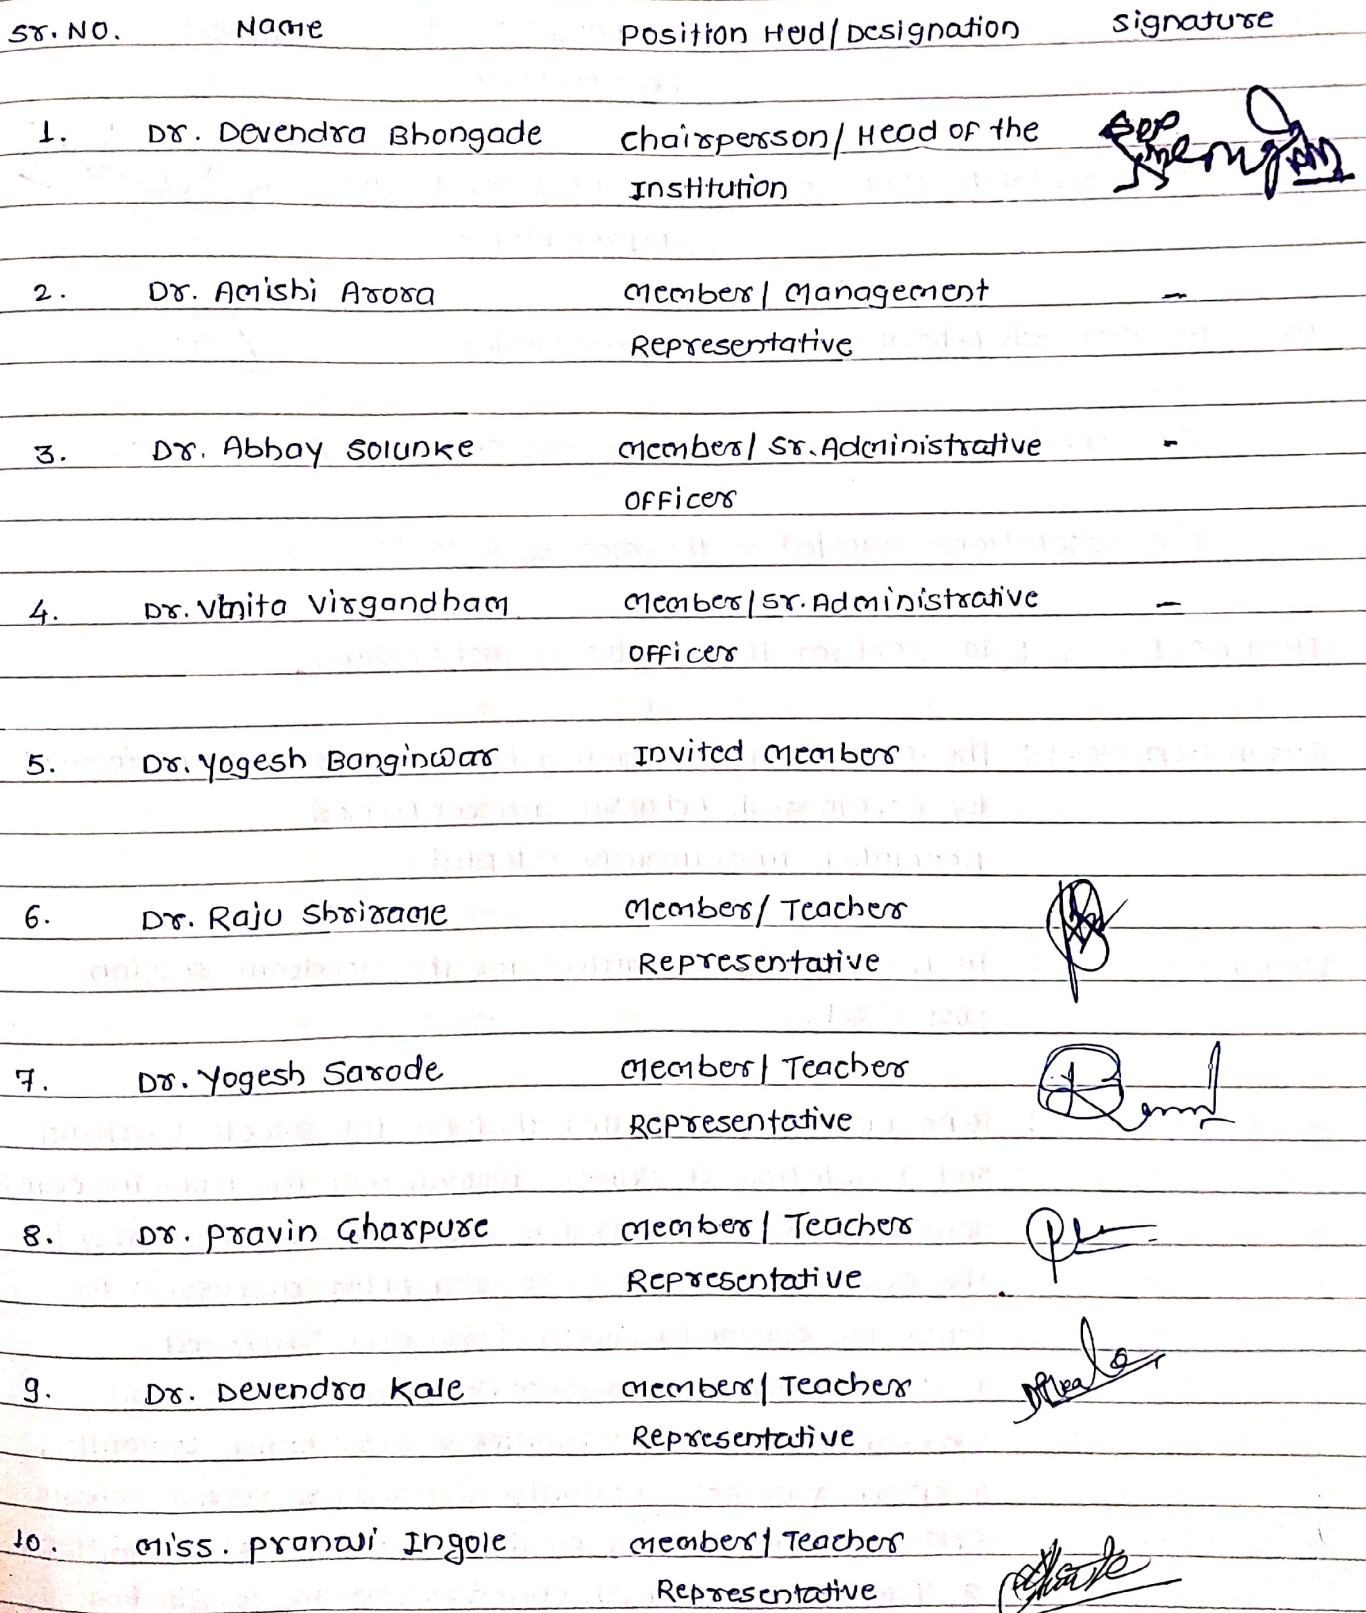 Sr. No. Name Position Held/Designation signature
1. Dr. Devendra Bhongade Chairperson/ Head of the
Institution
2. Dr. Amishi Arora Member/ Management -
Representative
3. Dr. Abhay Solunke Member/ Sr. Administrative -
Officer
4. Dr. Vinita Virgandham Member/ Sr. Administrative -
Officer
5. Dr. Yogesh Banginwar Invited Member
6. Dr. Raju Shrirame Member/ Teacher
Representative
7. Dr. Yogesh Sarode Member/ Teacher
Representative
8. Dr. Pravin Gharpure Member/ Teacher
Representative
9. Dr. Devendra Kale Member/ Teacher
Representative
10. Miss. Pranali Ingole Member/ Teacher
Representative